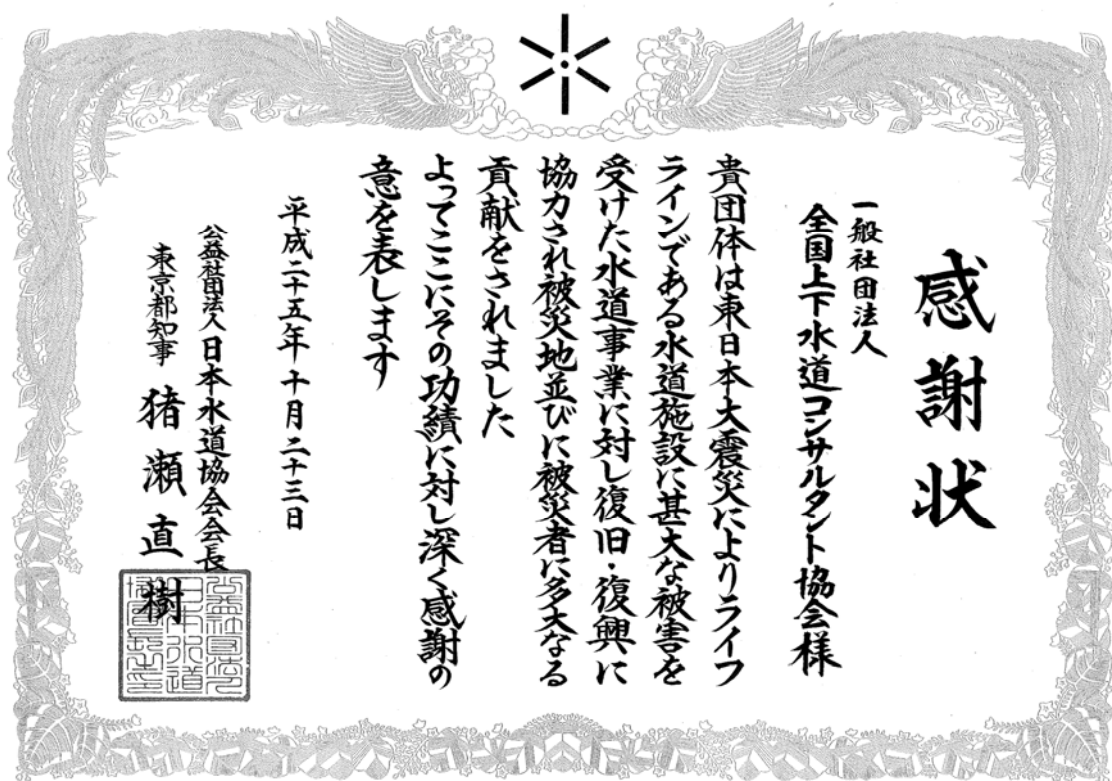 感謝状
一般社団法人
全国上下水道コンサルタント協会様
貴団体は東日本大震災によりライフ
ラインである水道施設に甚大な被害を
受けた水道事業に対し復旧・復興に
協力され被災地並びに被災者に多大なる
貢献をされました
よってここにその功績に対し深く感謝の
意を表します
平成二十五年十月二十三日
公益社団法人日本水道協会会長
東京都知事 猪瀬直樹